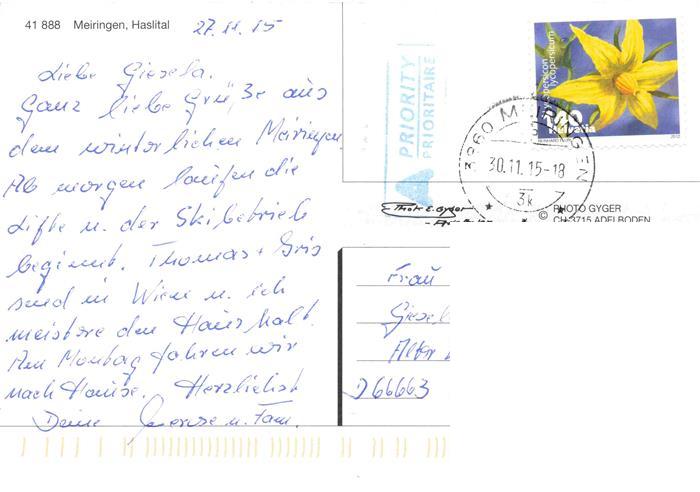 41 888 Meiringen, Haslital
27.11.15
Liebe Giesela.
Ganz liebe Grüße aus
dem winterlichen Meiringen.
Ab morgen laufen die
Lifte u. der Skibetrieb
beginnt. Thomas + Gris
sind in Wien u. ich
meistere den Haushalt.
Am Montag fahren wir
nach Hause. Herzlichst
Deine u. Fam.
PRIORITY
PRIORITAIRE
lycopersicum
Helvetia
3860 MEIRINGEN
30.11.15-18
3k
© PHOTO GYGER
CH-3715 ADELBODEN
Frau
Giesel
Alter
D 66663